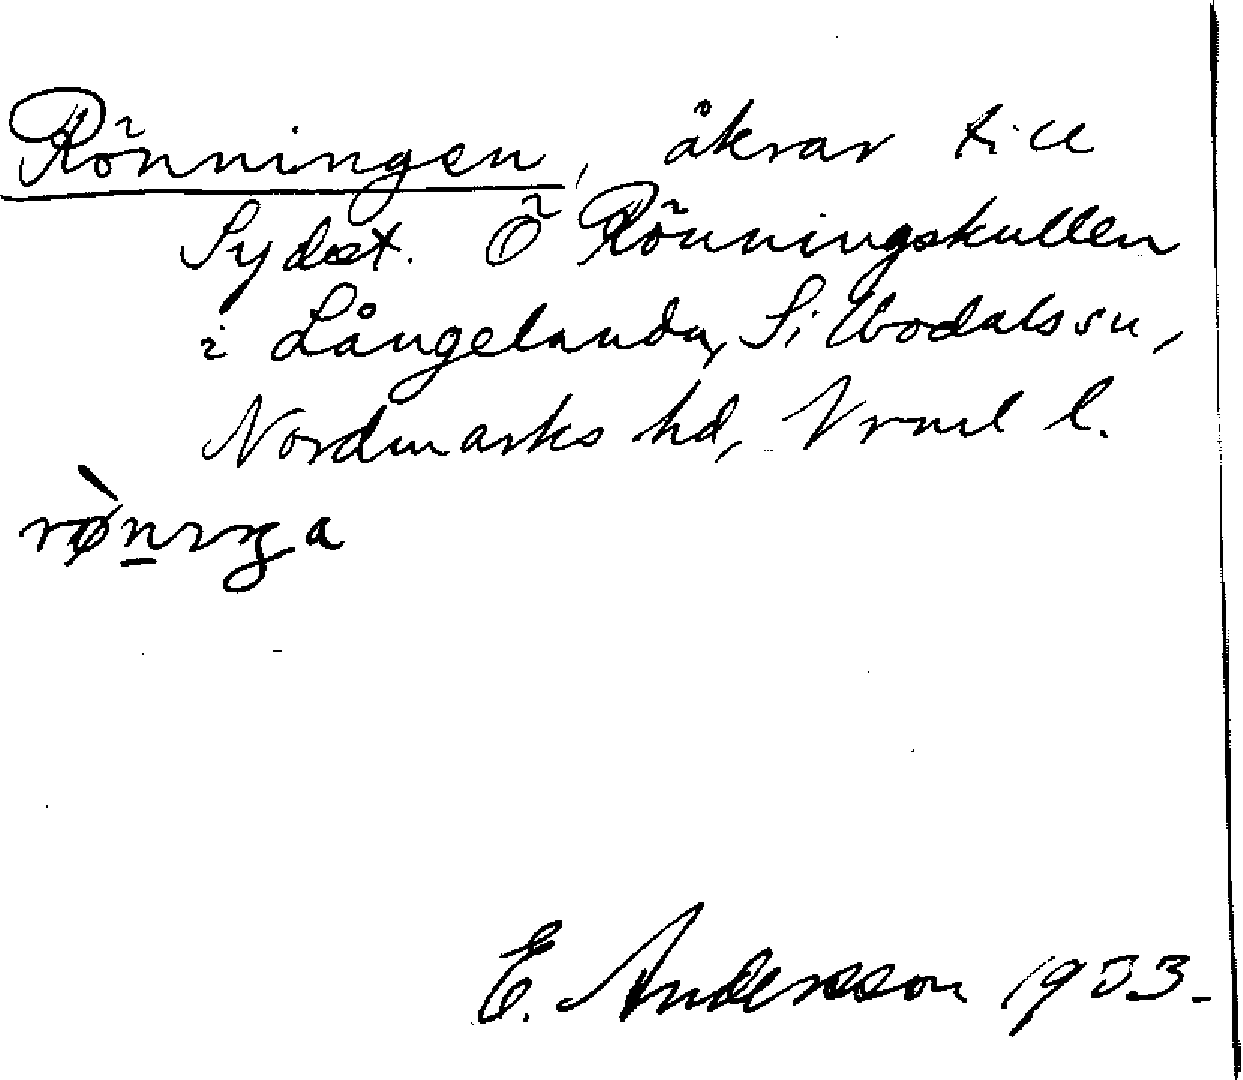 Rönningen, åkrar till
Sydöst. Ö Rönningskullen
i Långelanda, Silbodals sn,
Nordmarks hd, Vrml l.
rø̀nıŋa
E. Andersson 1933.